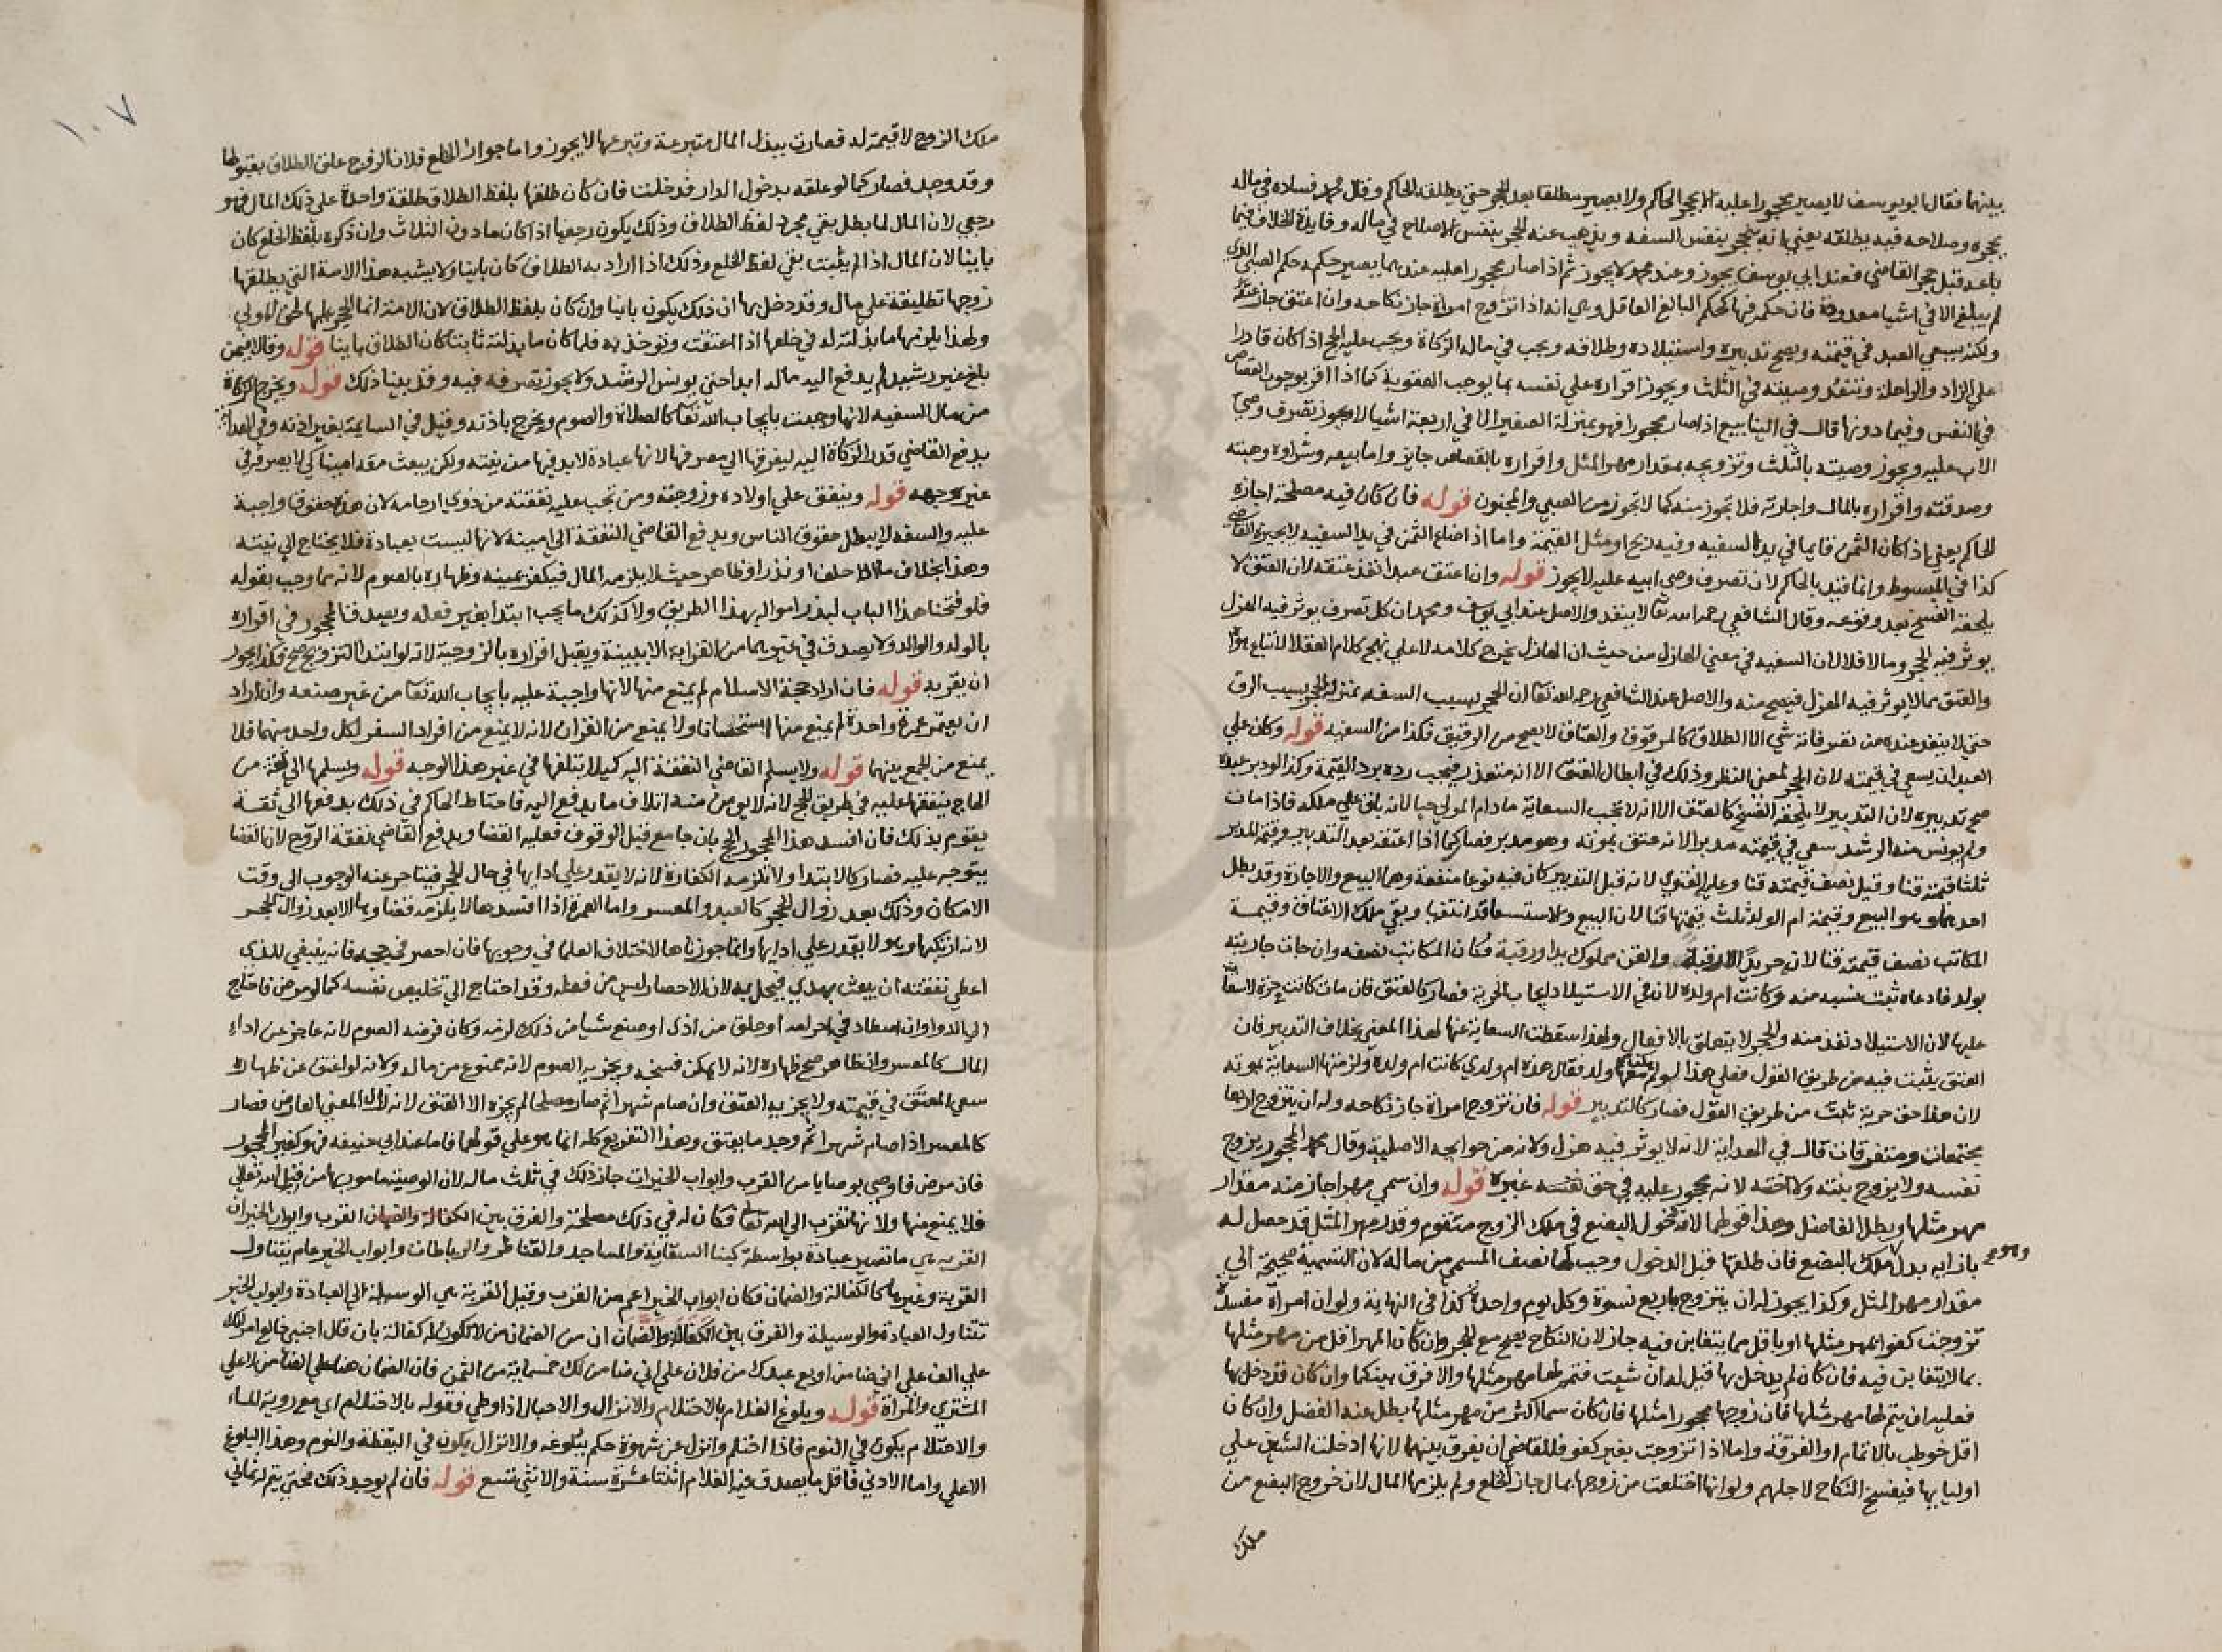 بينهما فقال ابو يوسف لا يصير محجورا عليه الا بحجر الحاكم ولا يصير مطلقا بعد الحجر حتى يطلقه الحاكم وقال محمد فساده في ماله
يحجره وصلاحه فيه يطلقه يعني انه ينحجر بنفس السفه ويذهب عنه الحجر بنفس الاصلاح في ماله وفايدة الخلاف فيما
باعه قبل حجر القاضي فعند ابي يوسف يجوز وعند محمد لا يجوز ثم اذا صار محجورا عليه عندهما يصير حكمه حكم الصبي الذي
لم يبلغ الا في اشيا معدودة فان حكمه فيها كحكم البالغ العاقل وهي انه اذا تزوج امراة جاز نكاحه وان اعتق جاز عتقه
ولكنه يسعي العبد في قيمته ويصح تدبيره واستيلاده وطلاقه ويجب في ماله الزكاة ويجب عليه الحج اذا كان قادرا
علي الزاد والراحلة وتنفذ وصيته في الثلث ويجوز اقراره علي نفسه بما يوجب العقوبة كما اذا اقر بوجوب القصاص
في النفس وفيما دونها قال في الينابيع اذا صار محجورا فهو بمنزلة الصغير الا في اربعة اشيا لا يجوز تصرف وصي
الاب عليه ويجوز وصيته بالثلث وتزويجه بمقدار مهر المثل واقراره بالقصاص جايز واما بيعه وشراوه وهبته
وصدقته واقراره بالمال واجارته فلا تجوز منه كما لا تجوز من الصبي والمجنون قوله فان كان فيه مصلحة اجازه
الحاكم يعني اذا كان الثمن قايما في يد السفيه وفيه ربح او مثل القيمة واما اذا ضاع الثمن في يد السفيه لا يجيزه القاضي
كذا في المبسوط وانما قيد بالحاكم لان تصرف وصي ابيه عليه لا يجوز قوله وان اعتق عبدا نفذ عتقه لان العتق لا
يلحقه الفسخ بعد وقوعه وقال الشافعي رحمه الله تعالى لا ينفذ والاصل عند ابي يوسف ومحمد ان كل تصرف يوثر فيه الهزل
يوثر فيه الحجر وما لا فلا لان السفيه في معني الهازل من حيث ان الهازل يخرج كلامه لا علي نهج كلام العقلا لاتباع هواه
والعتق مما لا يوثر فيه الهزل فيصح منه والاصل عند الشافعي رحمه الله تعا ان الحجر بسبب السفه بمنزلة الحجر بسبب الرق
حتى لا ينفذ عنده من تصرفاته شي الا الطلاق كالمرقوق والعتاق لا يصح من الرقيق فكذا من السفيه قوله وكان علي
العبد ان يسعي في قيمته لان الحجر لمعني النظر وذلك في ابطال العتق الا انه متعذر فيجب رده برد القيمة وكذا لو دبر عبده
صح تدبيره لان التدبير لا يلحقه الفسخ كالعتق الا انه لا تجب السعاية ما دام المولي حيا لانه باق علي ملكه فاذا مات
ولم يونس منه الرشد سعي في قيمته مدبرا لانه عتق بموته وهو مدبر فصار كما اذا اعتقه بعد التدبير وقيمة المدبر
ثلثا قيمته قنا وقيل نصف قيمته قنا وعليه الفتوي لانه قبل التدبير كان فيه نوعا منفعة وهما البيع والاجارة وقد بطل
احدهما وهو البيع وقيمة ام الولد ثلث قيمتها قنا لان البيع والاستسعا قد انتفيا وبقي ملك الاعتاق وقيمة
المكاتب نصف قيمته قنا لانه حر يدا لا رقبة والقن مملوك يدا ورقبة فكان المكاتب نصفه وان جات جاريته
بولد فادعاه ثبت نسبه منه وكانت ام ولده لان في الاستيلاد ايجاب الحرية فصار كالعتق فان مات كانت حرة لا سعاية
عليها لان الاستيلاد نفذ منه والحجر لا يتعلق بالافعال ولهذا سقطت السعاية عنها لهذا المعني بخلاف التدبير فان
العتق يثبت فيه من طريق القول فعلي هذا لو لم يكن معها ولد فقال هذه ام ولدي كانت ام ولده ولزمتها السعاية بموته
لان هذا حق حرية ثبت من طريق القول فصار كالتدبير قوله فان تزوج امراة جاز نكاحه وله ان يتزوج اربعا
مجتمعات ومتفرقات قال في الهداية لانه لا يوثر فيه هزل ولانه من حوايجه الاصلية وقال محمد المحجور يزوج
نفسه ولا يزوج بنته ولا اخته لانه محجور عليه في حق نفسه غيره قوله وان سمي مهرا جاز منه مقدار
مهر مثلها وبطل الفاضل وهذا قولهما لان دخول البضع في ملك الزوج متقوم وقدر مهر المثل قد حصل له
بازايه بدل ملك البضع فان طلقها قبل الدخول وجب لها نصف المسمي من ماله لان التسمية صحيحة الي
مقدار مهر المثل وكذا يجوز له ان يتزوج باربع نسوة وكل يوم واحدة كذا في النهاية ولو ان امراة مفسدة
تزوجت كفوا بمهر مثلها او باقل مما يتغابن فيه جاز لان النكاح يصح مع الحجر وان كان المهر اقل من مهر مثلها
بما لا يتغابن فيه فان كان لم يدخل بها قيل له ان شيت فتمم لها مهر مثلها والا فرق بينكما وان كان قد دخل بها
فعليه ان يتم لها مهر مثلها فان زوجها محجورا مثلها فان كان سما اكثر من مهر مثلها بطل عنه الفضل وان كان
اقل خوطب بالاتمام او الفرقة واما اذا تزوجت بغير كفو فللقاضي ان يفرق بينهما لانها ادخلت الشين علي
اوليايها فيفسخ النكاح لاجلهم ولو انها اختلعت من زوجها بمال جاز الخلع ولم يلزمها المال لان خروج البضع من
ملك
١٠٧
ملك الزوج لا قيمة له فصارت ببذل المال متبرعة وتبرعها لا يجوز واما جواز الخلع فلان الزوج علق الطلاق بقبولها
وقد وجد فصار كما لو علقه بدخول الدار فدخلت فان كان طلقها بلفظ الطلاق طلقة واحدة علي ذلك المال فهو
رجعي لان المال لما بطل بقي مجرد لفظ الطلاق وذلك يكون رجعيا اذا كان ما دون الثلاث وان ذكره بلفظ الخلع كان
باينا لان المال اذا لم يثبت بقي لفظ الخلع وذلك اذا اراد به الطلاق كان باينا ولا يشبه هذا الامة التي يطلقها
زوجها تطليقة علي مال وقد دخل بها ان ذلك يكون باينا وان كان بلفظ الطلاق لان الامة انما الحجر عليها لحق المولي
ولهذا يلزمها ما بذلته له في خلعها اذا اعتقت وتوخذ به فلما كان ما بذلته ثابتا كان الطلاق باينا قوله وقالا فيمن
بلغ غير رشيد لم يدفع اليه ماله ابدا حتى يونس الرشد ولا يجوز تصرفه فيه وقد بينا ذلك قوله ويخرج الزكاة
من مال السفيه لانها وجبت بايجاب الله تعا كالصلاة والصوم ويخرج باذنه وقيل في السايمة بغير اذنه وفي الهداية
يدفع القاضي قدر الزكاة اليه ليفرقها الي مصرفها لانها عبادة لا بد فيها من نيته ولكن يبعث معه امينا كي لا يصرفه في
غير وجهه قوله وينفق علي اولاده وزوجته ومن تجب عليه نفقته من ذوي ارحامه لان هذه حقوق واجبة
عليه والسفه لا يبطل حقوق الناس ويدفع القاضي النفقة الي امينه لانها ليست بعبادة فلا يحتاج الي نيته
وهذا بخلاف ما اذا حلف او نذر او ظاهر حيث لا يلزمه المال فيكفر يمينه وظهاره بالصوم لانه مما وجب بقوله
فلو فتحنا هذا الباب لبذر امواله بهذا الطريق ولا كذلك ما يجب ابتدا بغير فعله ويصدق المحجور في اقراره
بالولد والوالد ولا يصدق في غيرهما من القرابة الا ببينة ويقبل اقراره بالزوجية لانه لو ابتدا التزويج صح فكذا يجوز
ان يقر به قوله فان اراد حجة الاسلام لم يمنع منها لانها واجبة عليه بايجاب الله تعا من غير صنعه وان اراد
ان يعتمر عمرة واحدة لم يمنع منها استحسانا ولا يمنع من القران لانه لا يمنع من افراد السفر لكل واحد منهما فلا
يمنع من الجمع بينهما قوله ولا يسلم القاضي النفقة اليه كيلا يتلفها في غير هذا الوجه قوله ويسلمها الي ثقة من
الحاج ينفقها عليه في طريق الحج لانه لا يومن منه اتلاف ما يدفع اليه فاحتاط الحاكم في ذلك بدفعها الي ثقة
يقوم بذلك فان افسد هذا المحجور الحج بان جامع قبل الوقوف فعليه القضا ويدفع القاضي نفقة الرجوع لان القضا
يتوجه عليه فصار كالابتدا ولا تلزمه الكفارة لانه لا يقدر علي ادايها في حال الحجر فيتاخر عنه الوجوب الي وقت
الامكان وذلك بعد زوال الحجر كالعبد والمعسر واما العمرة اذا افسدها لا يلزمه قضاوها الا بعد زوال الحجر
لانه ارتكبها وهو لا يقدر علي ادايها وانما جوزناها لاختلاف العلما في وجوبها فان احصر في حجه فانه ينبغي للذي
اعطي نفقته ان يبعث بهدي فيحل به لان الاحصار ليس من فعله وقد احتاج الي تخليص نفسه كما لو مرض فاحتاج
الي الدوا وان اصطاد في احرامه او حلق من اذي او صنع شيا من ذلك لزمه وكان فرضه الصوم لانه عاجز عن اداء
المال كالمعسر وان ظاهر صح ظهاره لانه لا يمكن فسخه ويجزيه الصوم لانه ممنوع من ماله ولانه لو اعتق عن ظهاره
سعي المعتق في قيمته ولا يجزيه العتق وان صام شهرا ثم صار مصلحا لم يجزه الا العتق لانه زال المعني العارض فصار
كالمعسر اذا صام شهرا ثم وجد ما يعتق وهذا التفريع كله انما هو علي قولهما فاما عند ابي حنيفة فهو كغير المحجور
فان مرض فاوصي بوصايا من القرب وابواب الخيرات جاز ذلك في ثلث ماله لان الوصية مامور بها من قبل الله تعالي
فلا يمنع منها ولانها تقرب الي الله تعا فكان له في ذلك مصلحة والفرق بين القرب وابواب الخير ان
القربة هي ما تصير عبادة بواسطة كبنا السقاية والمساجد والقناطر والرباطات وابواب الخير عام يتناول
القربة وغيرها كالكفالة والضمان فكان ابواب الخير اعم من القرب وقيل القربة هي الوسيلة الي العبادة وابواب الخير
تتناول العبادة والوسيلة والفرق بين الكفالة والضمان ان من الضمان ما لا تكون كفالة بان قال اجنبي خالع امراتك
علي الف علي اني ضامن او بع عبدك من فلان علي اني ضامن لك خمسماية من الثمن فان الضمان هنا علي الضامن لا علي
المشتري والمراة قوله وبلوغ الغلام بالاحتلام والانزال والاحبال اذا وطي فقوله بالاحتلام اي مع روية الماء
والاحتلام يكون في النوم فاذا احتلم وانزل عن شهوة حكم ببلوغه والانزال يكون في اليقظة والنوم وهذا البلوغ
الاعلي واما الادني فاقل ما يصدق فيه الغلام اثنتا عشرة سنة والانثي تسع قوله فان لم يوجد ذلك فحتى يتم له ثماني